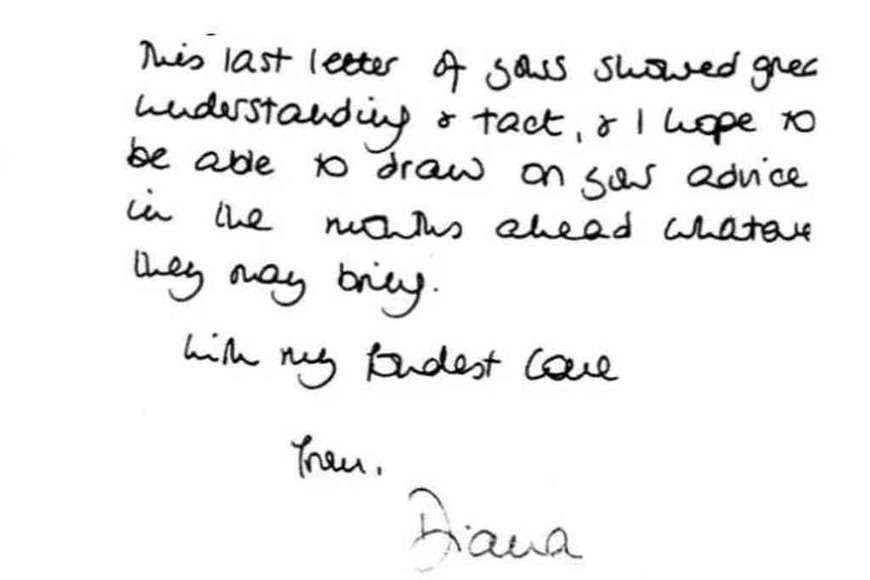 This last letter of yours showed grea
understanding & tact, & I hope to
be able to draw on your advice
in the months ahead whatever
they may bring.
With my fondest love
from,
Diana